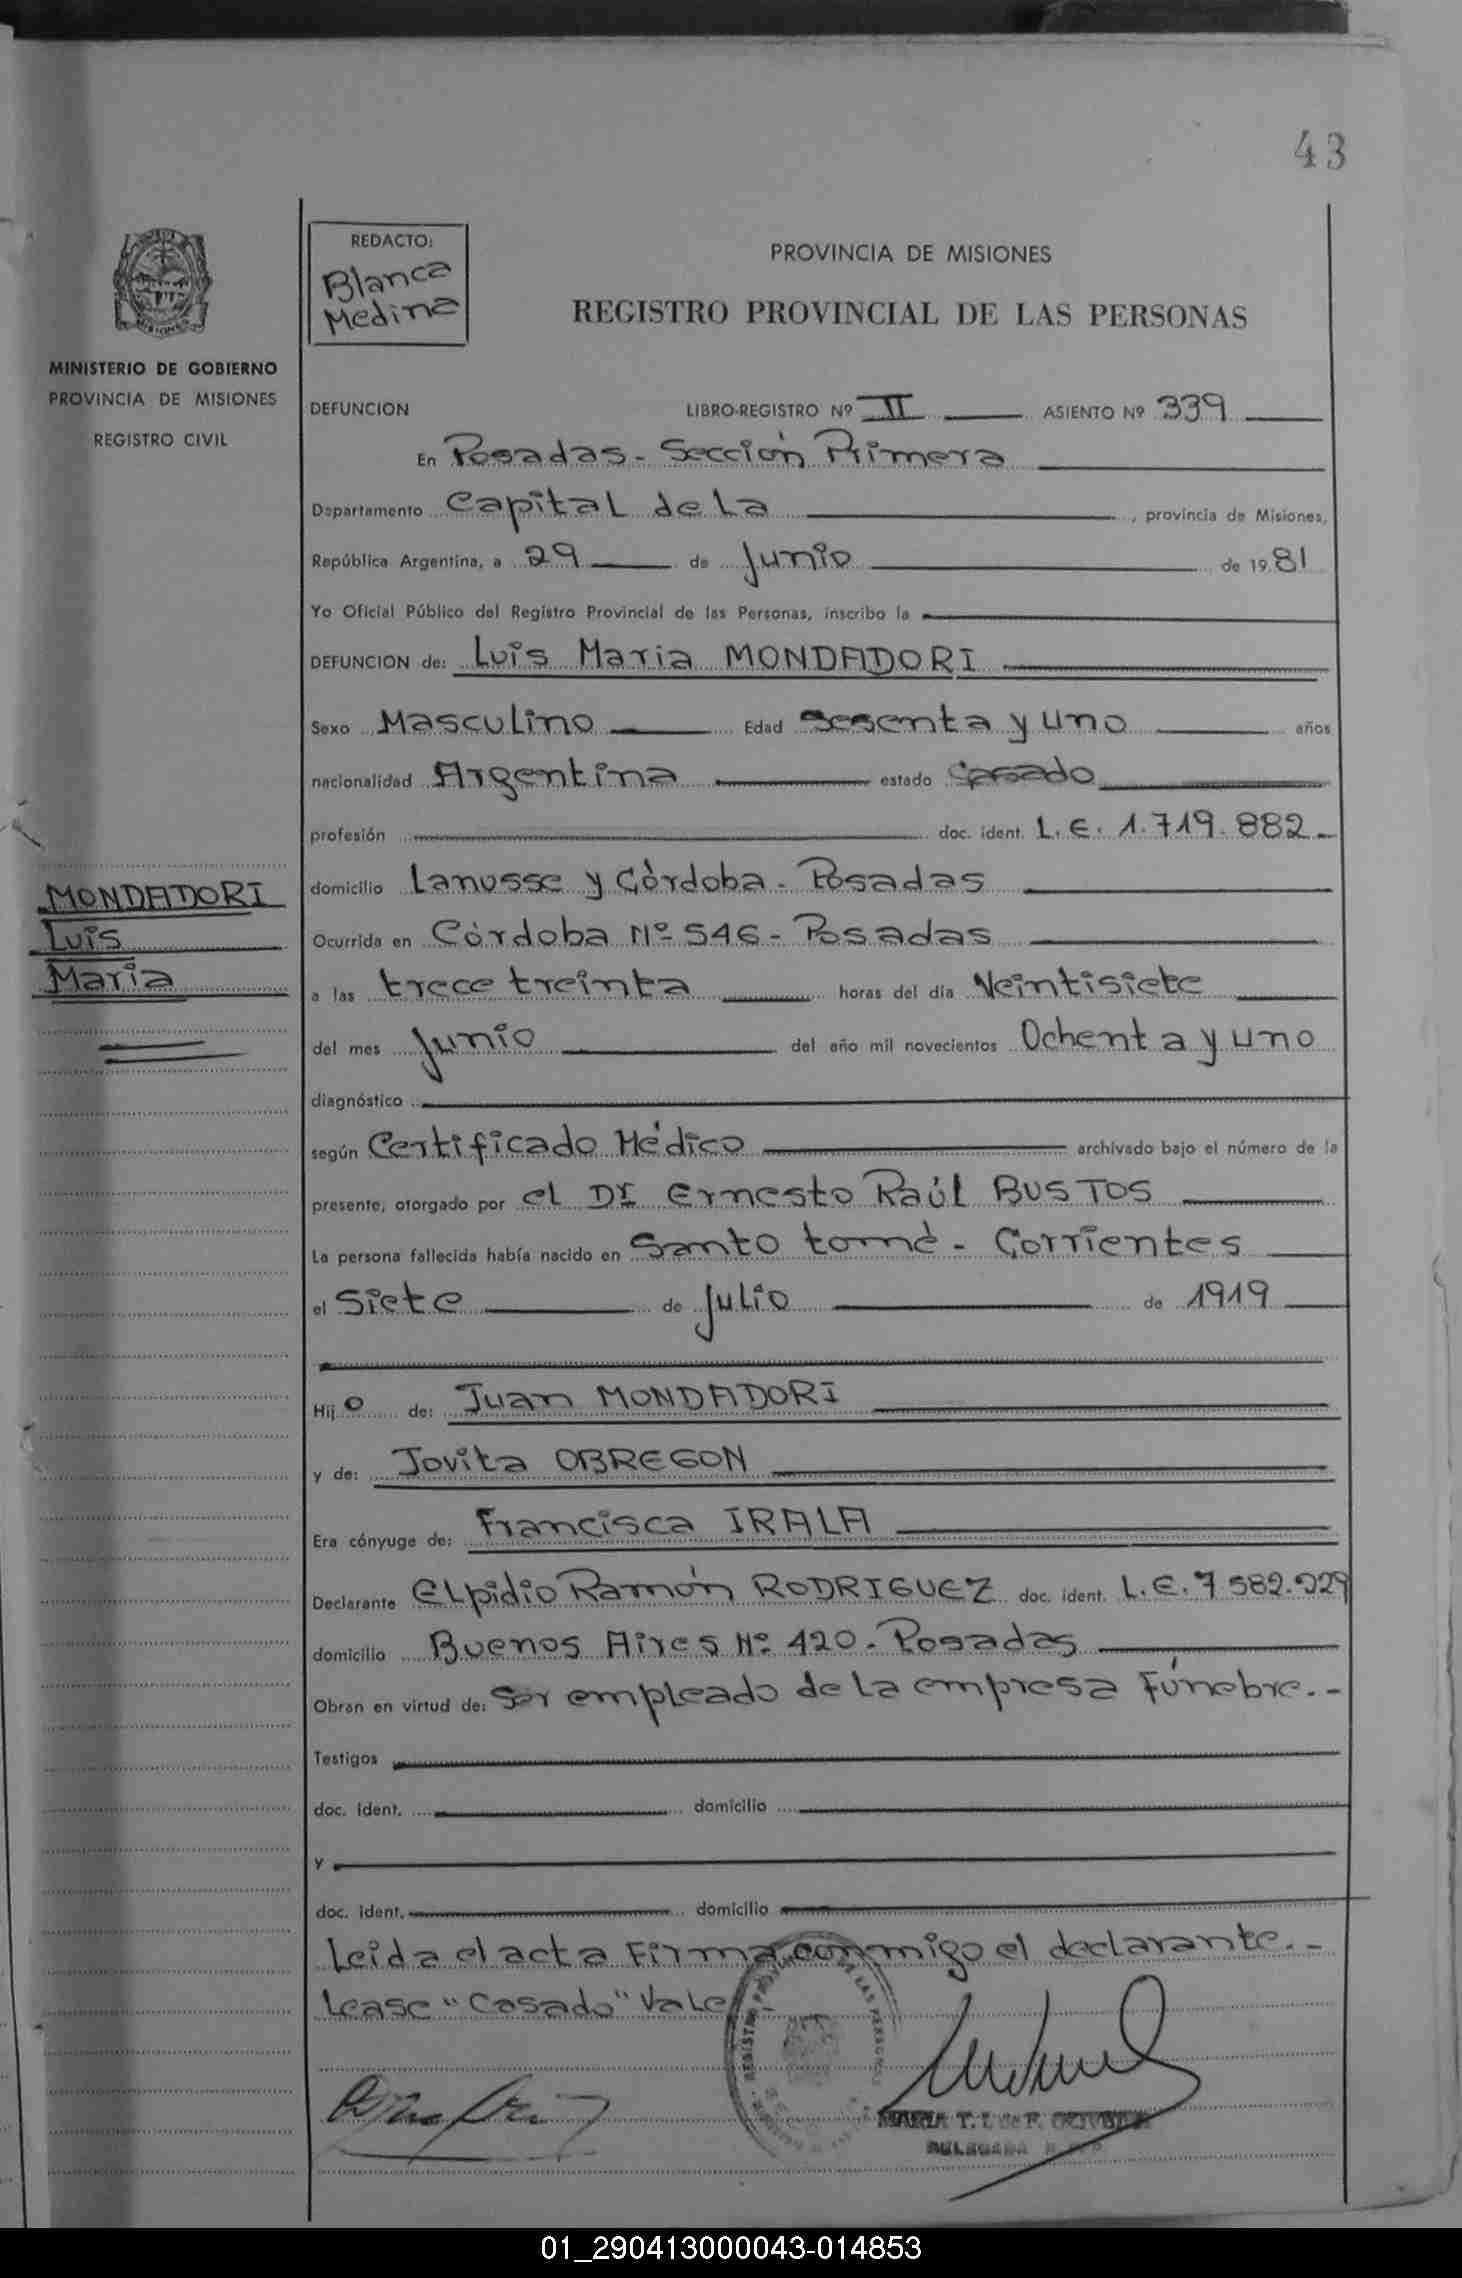 43
REDACTO:
Blanca
Medina
PROVINCIA DE MISIONES
REGISTRO PROVINCIAL DE LAS PERSONAS
MISIONES
MINISTERIO DE GOBIERNO
PROVINCIA DE MISIONES
REGISTRO CIVIL
DEFUNCION LIBRO-REGISTRO Nº II ASIENTO Nº 339
En Posadas - Sección Primera
Departamento Capital de La, provincia de Misiones,
República Argentina, a 29 de Junio de 1981
Yo Oficial Público del Registro Provincial de las Personas, inscribo la
DEFUNCION de: Luis Maria MONDADORI
Sexo Masculino Edad Sesenta y uno años
nacionalidad Argentina estado Casado
profesión doc. ident. L.E. 1.719.882.-
MONDADORI
Luis
Maria
domicilio Lanusse y Córdoba - Posadas
Ocurrida en Córdoba Nº 546 - Posadas
a las trece treinta horas del día Veintisiete
del mes Junio del año mil novecientos Ochenta y uno
diagnóstico
según Certificado Médico archivado bajo el número de la
presente, otorgado por el Dr Ernesto Raúl BUSTOS
La persona fallecida había nacido en Santo tomé - Corrientes
el Siete de Julio de 1919
Hijo de: Juan MONDADORI
y de: Jovita OBREGON
Era cónyuge de: Francisca IRALA
Declarante Elpidio Ramón RODRIGUEZ doc. ident. L.E. 7.582.229
domicilio Buenos Aires Nº 420 - Posadas
Obran en virtud de: Ser empleado de la empresa Fúnebre.-
Testigos
doc. ident. domicilio
y
doc. ident. domicilio
Leida el acta Firma conmigo el declarante.-
Lease "Casado" Vale
MARIA T. I. de F. OLIVERA
DELEGADA
01_290413000043-014853